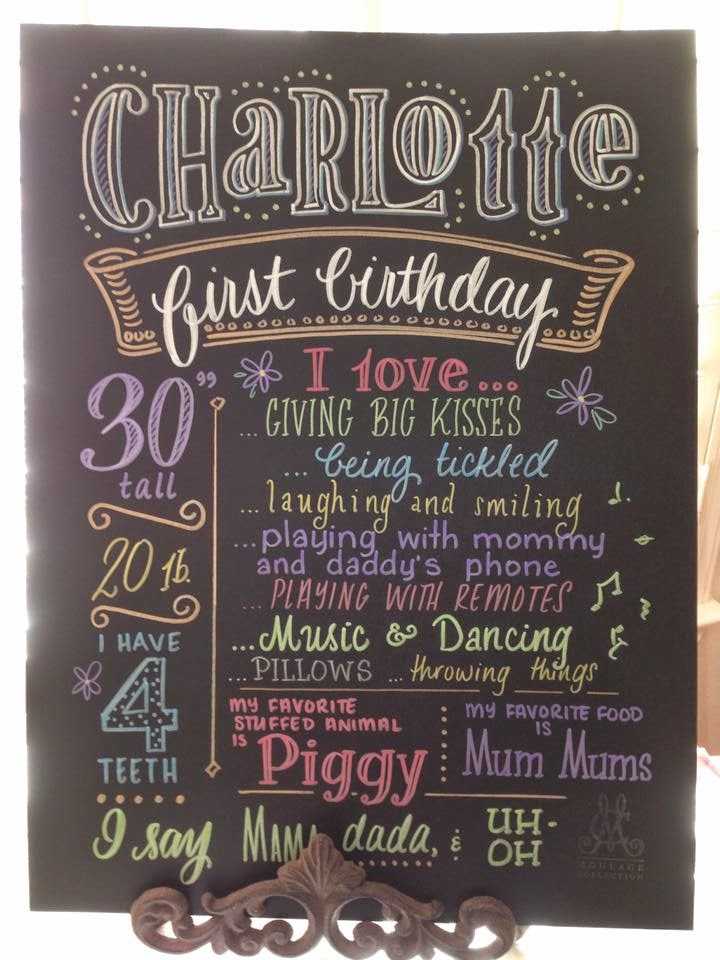 CHaRLOtte
first birthday
30"
tall
20 lb.
I HAVE
4
TEETH
I love...
...GIVING BIG KISSES
...being tickled
...laughing and smiling
...playing with mommy
and daddy's phone
...PLAYING WITH REMOTES
...Music & Dancing
...PILLOWS ...throwing things
MY FAVORITE
STUFFED ANIMAL
IS Piggy
MY FAVORITE FOOD
IS
Mum Mums
I say MAMA, dada, & UH-
OH
COLLECTION